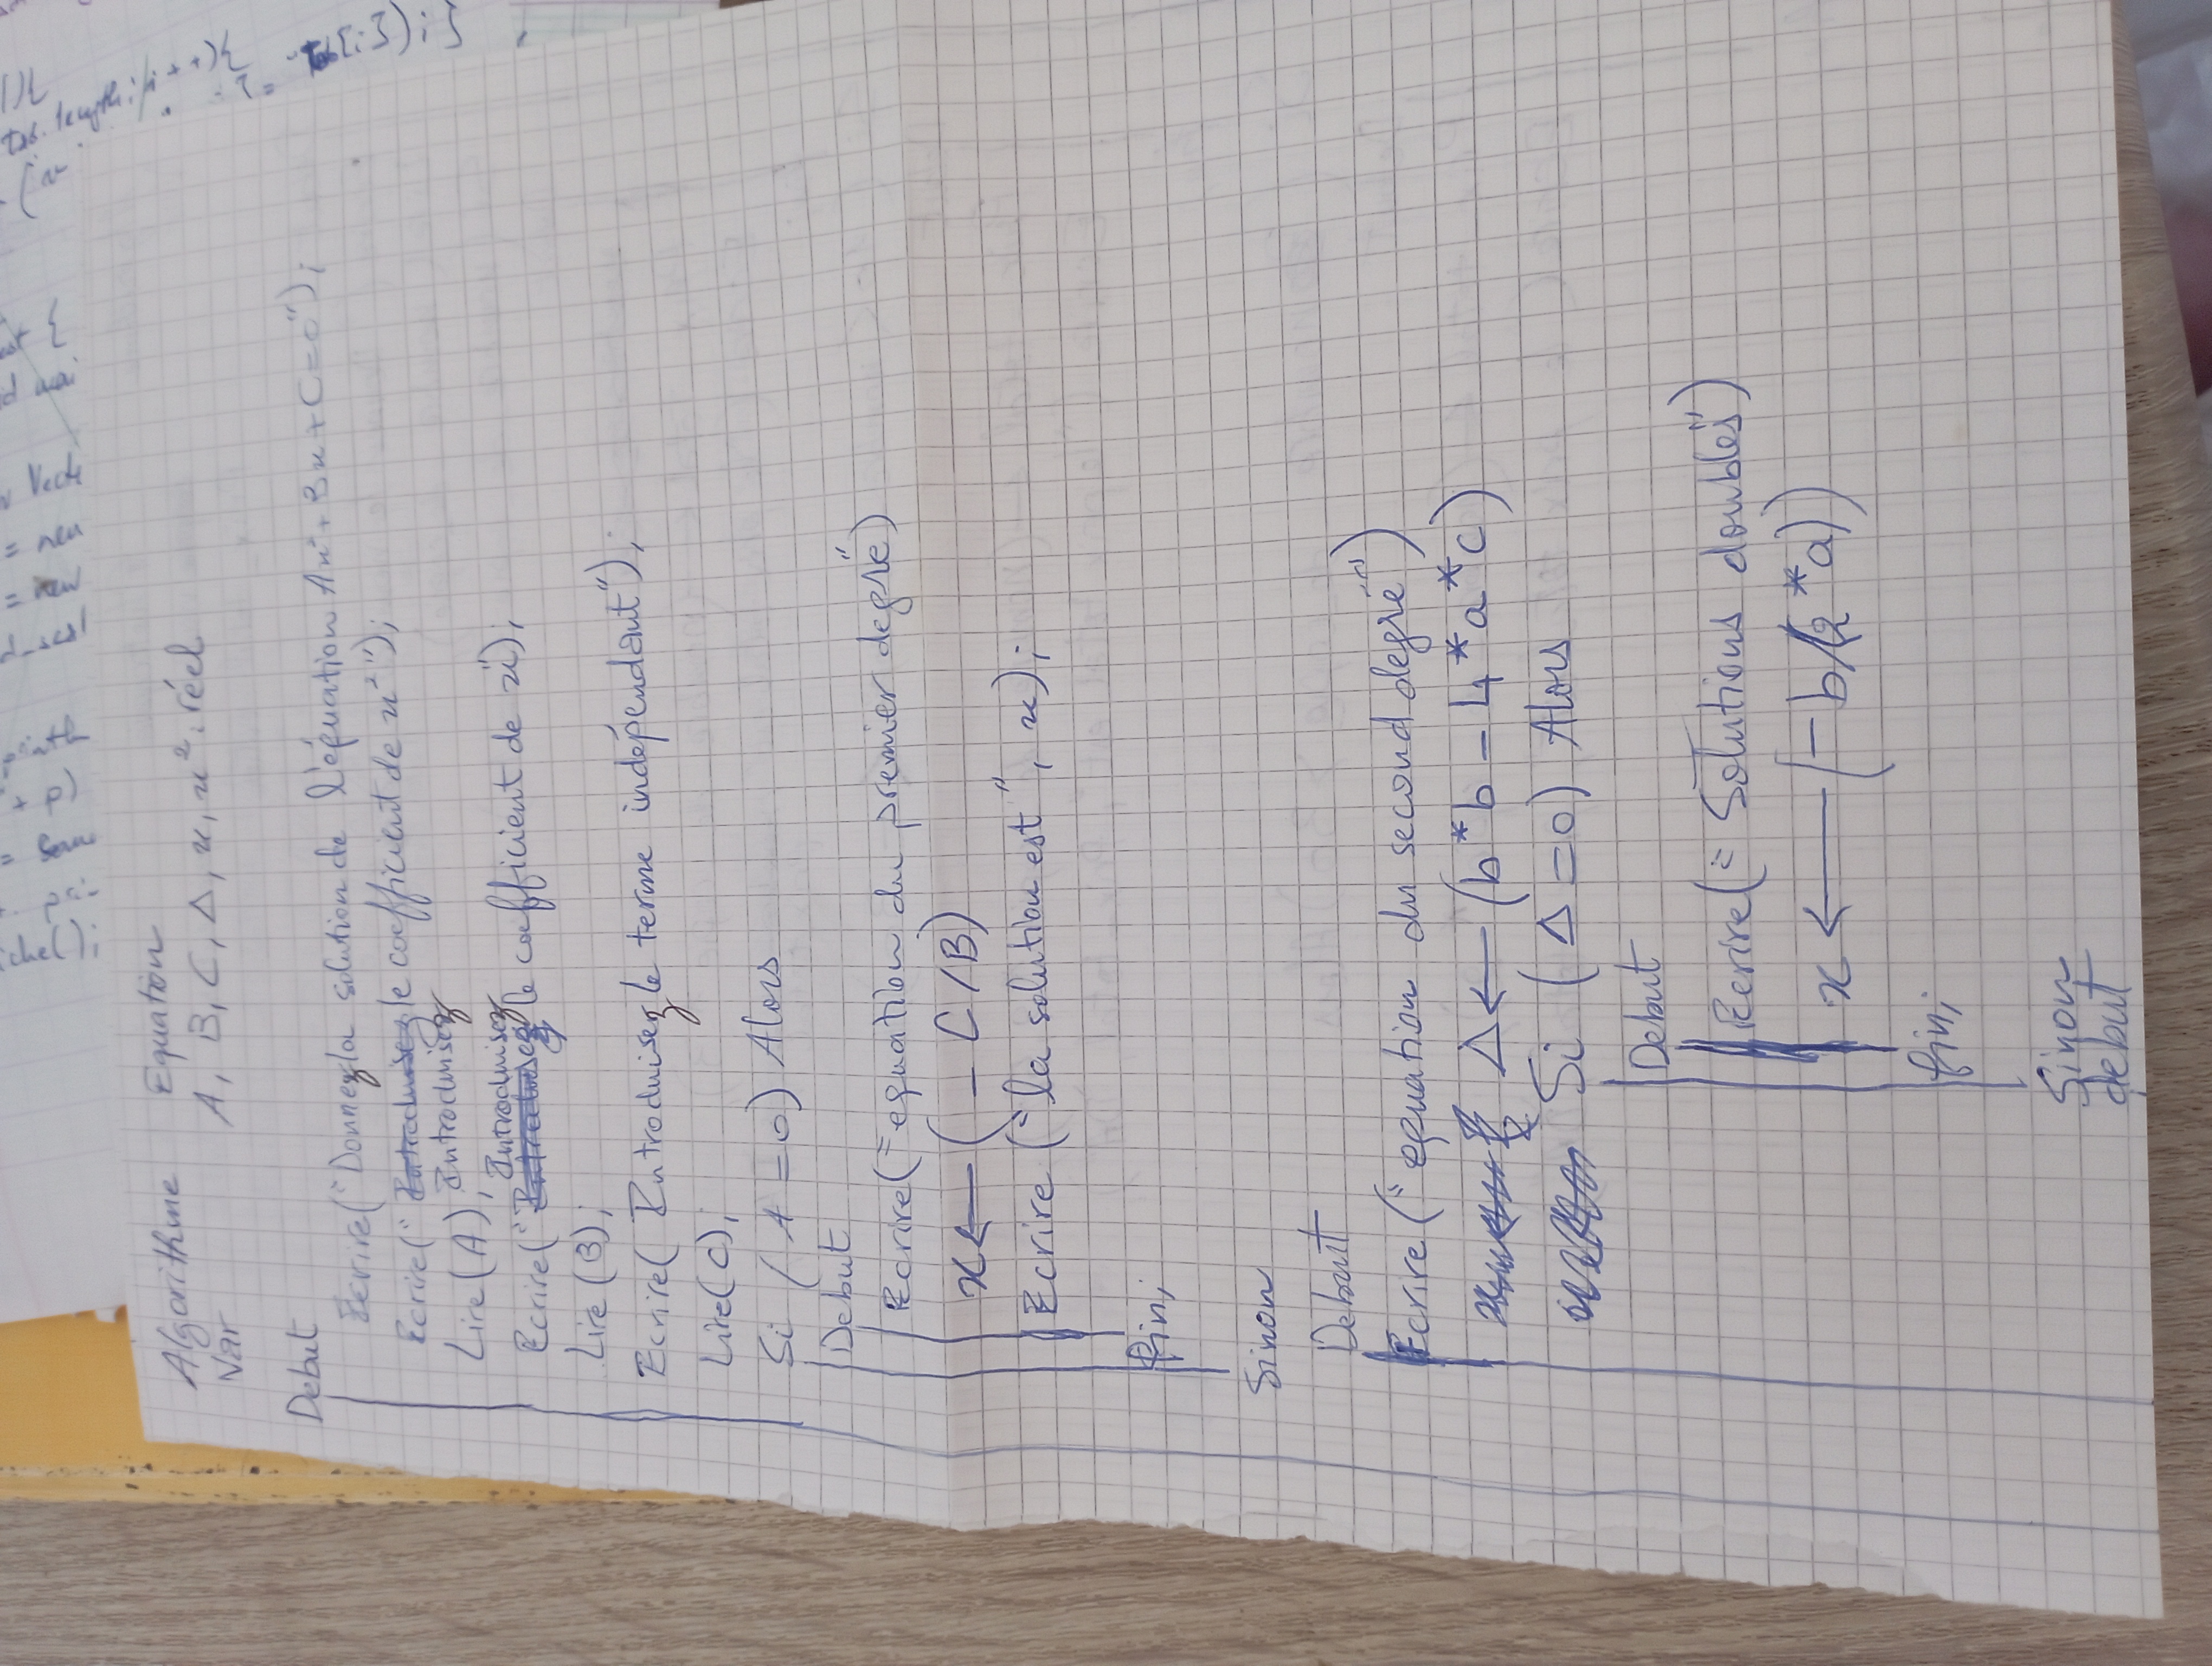 Algorithme Equation
Var A, B, C, Δ, x, x², réel
Debut
Ecrire("Donnez la solution de l'équation Ax²+Bx+C=0");
Ecrire(" Introduisez le coefficient de x²");
Introduisez
Lire(A);
Introduisez
Ecrire(" le coefficient de x");
Lire (B);
Ecrire( Introduisez le terme indépendant");
Lire(C);
Si (A =0) Alors
Debut
Ecrire("equation du premier degré")
x ← (- C/B)
Ecrire ("la solution est", x);
fin;
Sinon
Debut
Ecrire ("equation du second degré")
Δ ← (b*b - 4*a*c)
Si (Δ =0) Alors
Debut
Ecrire(" Solutions doubles")
x ← (-b/(2*a))
fin;
Sinon
debut